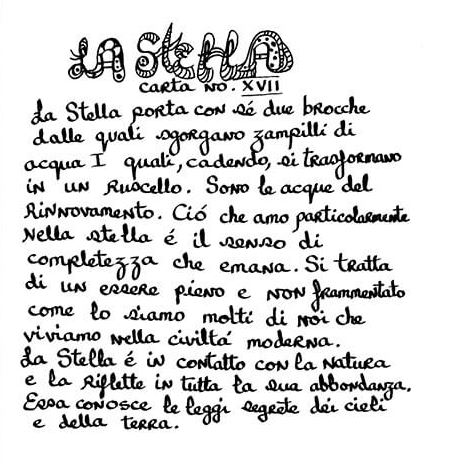 LA STELLA
CARTA NO. XVII
La Stella porta con sé due brocche
dalle quali sgorgano zampilli di
acqua I quali, cadendo, si trasformano
in un Ruscello. Sono le acque del
Rinnovamento. Ció che amo particolarmente
Nella stella é il senso di
completezza che emana. Si tratta
di un essere pieno e non frammentato
come lo siamo molti di noi che
viviamo nella civiltá moderna.
La Stella é in contatto con la Natura
e la riflette in tutta la sua abbondanza.
Essa conosce le leggi segrete dei cieli
e della terra.